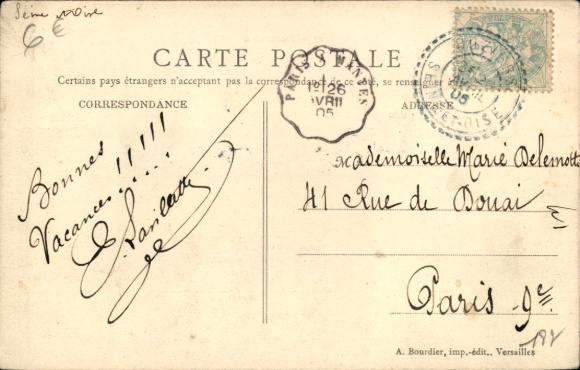 6€
CARTE POSTALE
Certains pays étrangers n'acceptant pas la correspondance de ce côté, se renseigner
CORRESPONDANCE
ADRESSE
PARIS A MANTES
1º 26
AVRIL
05
05
SEINE-ET-OISE
Bonnes
Vacances!!!!!
Mademoiselle Marie Delemotte
41 Rue de Douai
Paris 9e.
A. Bourdier, imp.-édit., Versailles